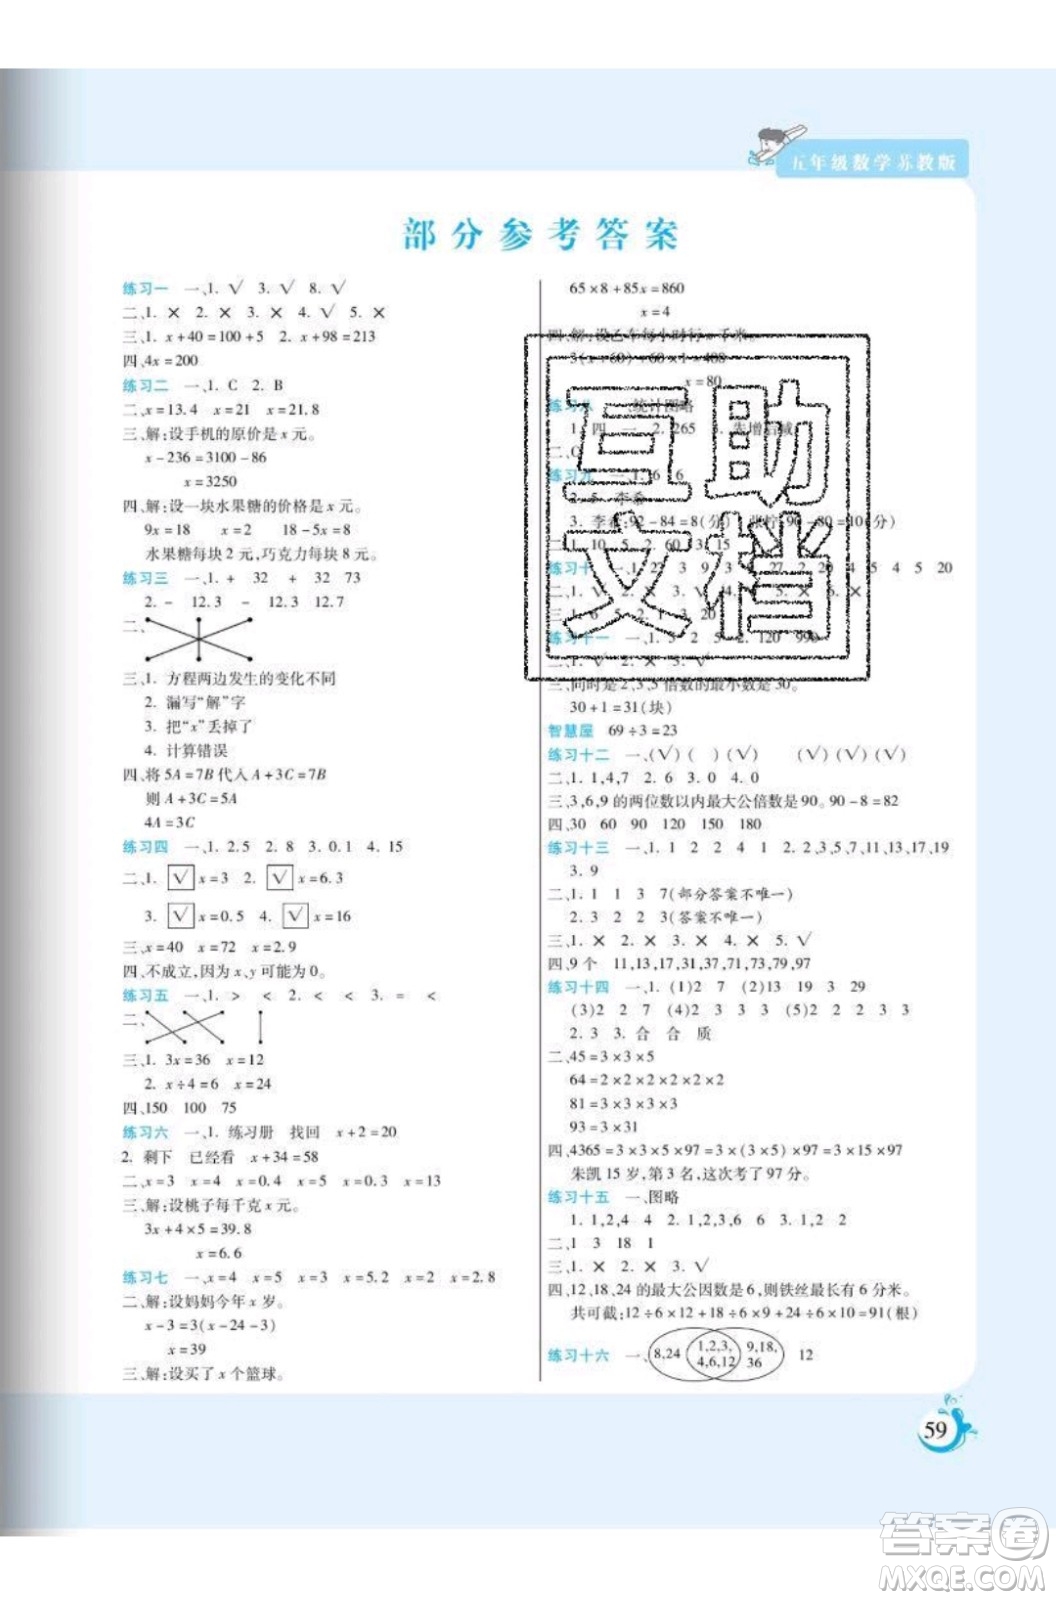 五年级数学苏教版
部分参考答案
练习一 一、1. √ 3. √ 8. √
二、1. × 2. × 3. × 4. √ 5. ×
三、1. x+40=100+5 2. x+98=213
四、4x=200
练习二 一、1. C 2. B
二、x=13.4 x=21 x=21.8
三、解:设手机的原价是 x 元。
x-236=3100-86
x=3250
四、解:设一块水果糖的价格是 x 元。
9x=18 x=2 18-5x=8
水果糖每块 2 元,巧克力每块 8 元。
练习三 一、1. + 32 + 32 73
2. - 12.3 - 12.3 12.7
二、
三、1. 方程两边发生的变化不同
2. 漏写“解”字
3. 把“x”丢掉了
4. 计算错误
四、将 5A=7B 代入 A+3C=7B
则 A+3C=5A
4A=3C
练习四 一、1. 2.5 2. 8 3. 0.1 4. 15
二、1. √ x=3 2. √ x=6.3
3. √ x=0.5 4. √ x=16
三、x=40 x=72 x=2.9
四、不成立,因为 x、y 可能为 0。
练习五 一、1. > < 2. < < 3. = <
二、
三、1. 3x=36 x=12
2. x÷4=6 x=24
四、150 100 75
练习六 一、1. 练习册 找回 x+2=20
2. 剩下 已经看 x+34=58
二、x=3 x=4 x=0.4 x=3 x=13
三、解:设桃子每千克 x 元。
3x+4×5=39.8
x=6.6
练习七 一、x=4 x=5 x=3 x=5.2 x=2 x=2.8
二、解:设妈妈今年 x 岁。
x-3=3(x-24-3)
x=39
三、解:设买了 x 个篮球。
65×8+85x=860
x=4
四、解:设乙车每小时行 x 千米。
x=80
练习八 一、统计图略
1. 四 一 2. 265 3. 先增后减
二、C
练习九 一、1. 6 6
2. 5 李希
3. 李希:92-84=8(分) 张柠:90-80=10(分)
二、1. 10 5 2. 60 3. 15
练习十
练习十一 一、1. 5 2 5 2. 120 990
二、1. √ 2. × 3. √
三、同时是 2、3、5 倍数的最小数是 30。
30+1=31(块)
智慧屋 69÷3=23
练习十二 一、(√) ( ) (√) (√) (√) (√)
二、1. 1,4,7 2. 6 3. 0 4. 0
三、3,6,9 的两位数以内最大公倍数是 90。90-8=82
四、30 60 90 120 150 180
练习十三 一、1. 1 2 2 4 1 2. 2,3,5,7,11,13,17,19
3. 9
二、1. 1 1 3 7(部分答案不唯一)
2. 3 2 2 3(答案不唯一)
三、1. × 2. × 3. × 4. × 5. √
四、9 个 11,13,17,31,37,71,73,79,97
练习十四 一、1. (1)2 7 (2)2 3 29
(3)2 2 7 (4)2 3 3 3 (5)2 2 2 3 3
2. 3 3. 合 合 质
二、45=3×3×5
64=2×2×2×2×2×2
81=3×3×3×3
93=3×31
四、4365=3×3×5×97=3×(3×5)×97=3×15×97
朱凯 15 岁,第 3 名,这次考了 97 分。
练习十五 一、图略
1. 1,2,4 4 2. 1,2,3,6 6 3. 1,2 2
二、1 3 18 1
三、1. × 2. × 3. √
四、12、18、24 的最大公因数是 6,则铁丝最长有 6 分米。
共可截:12÷6×12+18÷6×9+24÷6×10=91(根)
练习十六 一、 8,24 1,2,3,4,6,12 9,18,36 12
59
互助文档
答案卷